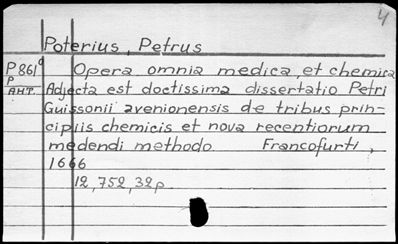 4
Poterius, Petrus
P861o Opera omnia medica, et chemica
P Adjecta est doctissima dissertatio Petri
АНТ. Guissonii avenionensis de tribus prin-
cipiis chemicis et nova recentiorum
medendi methodo Francofurti,
1666
12,752,32p